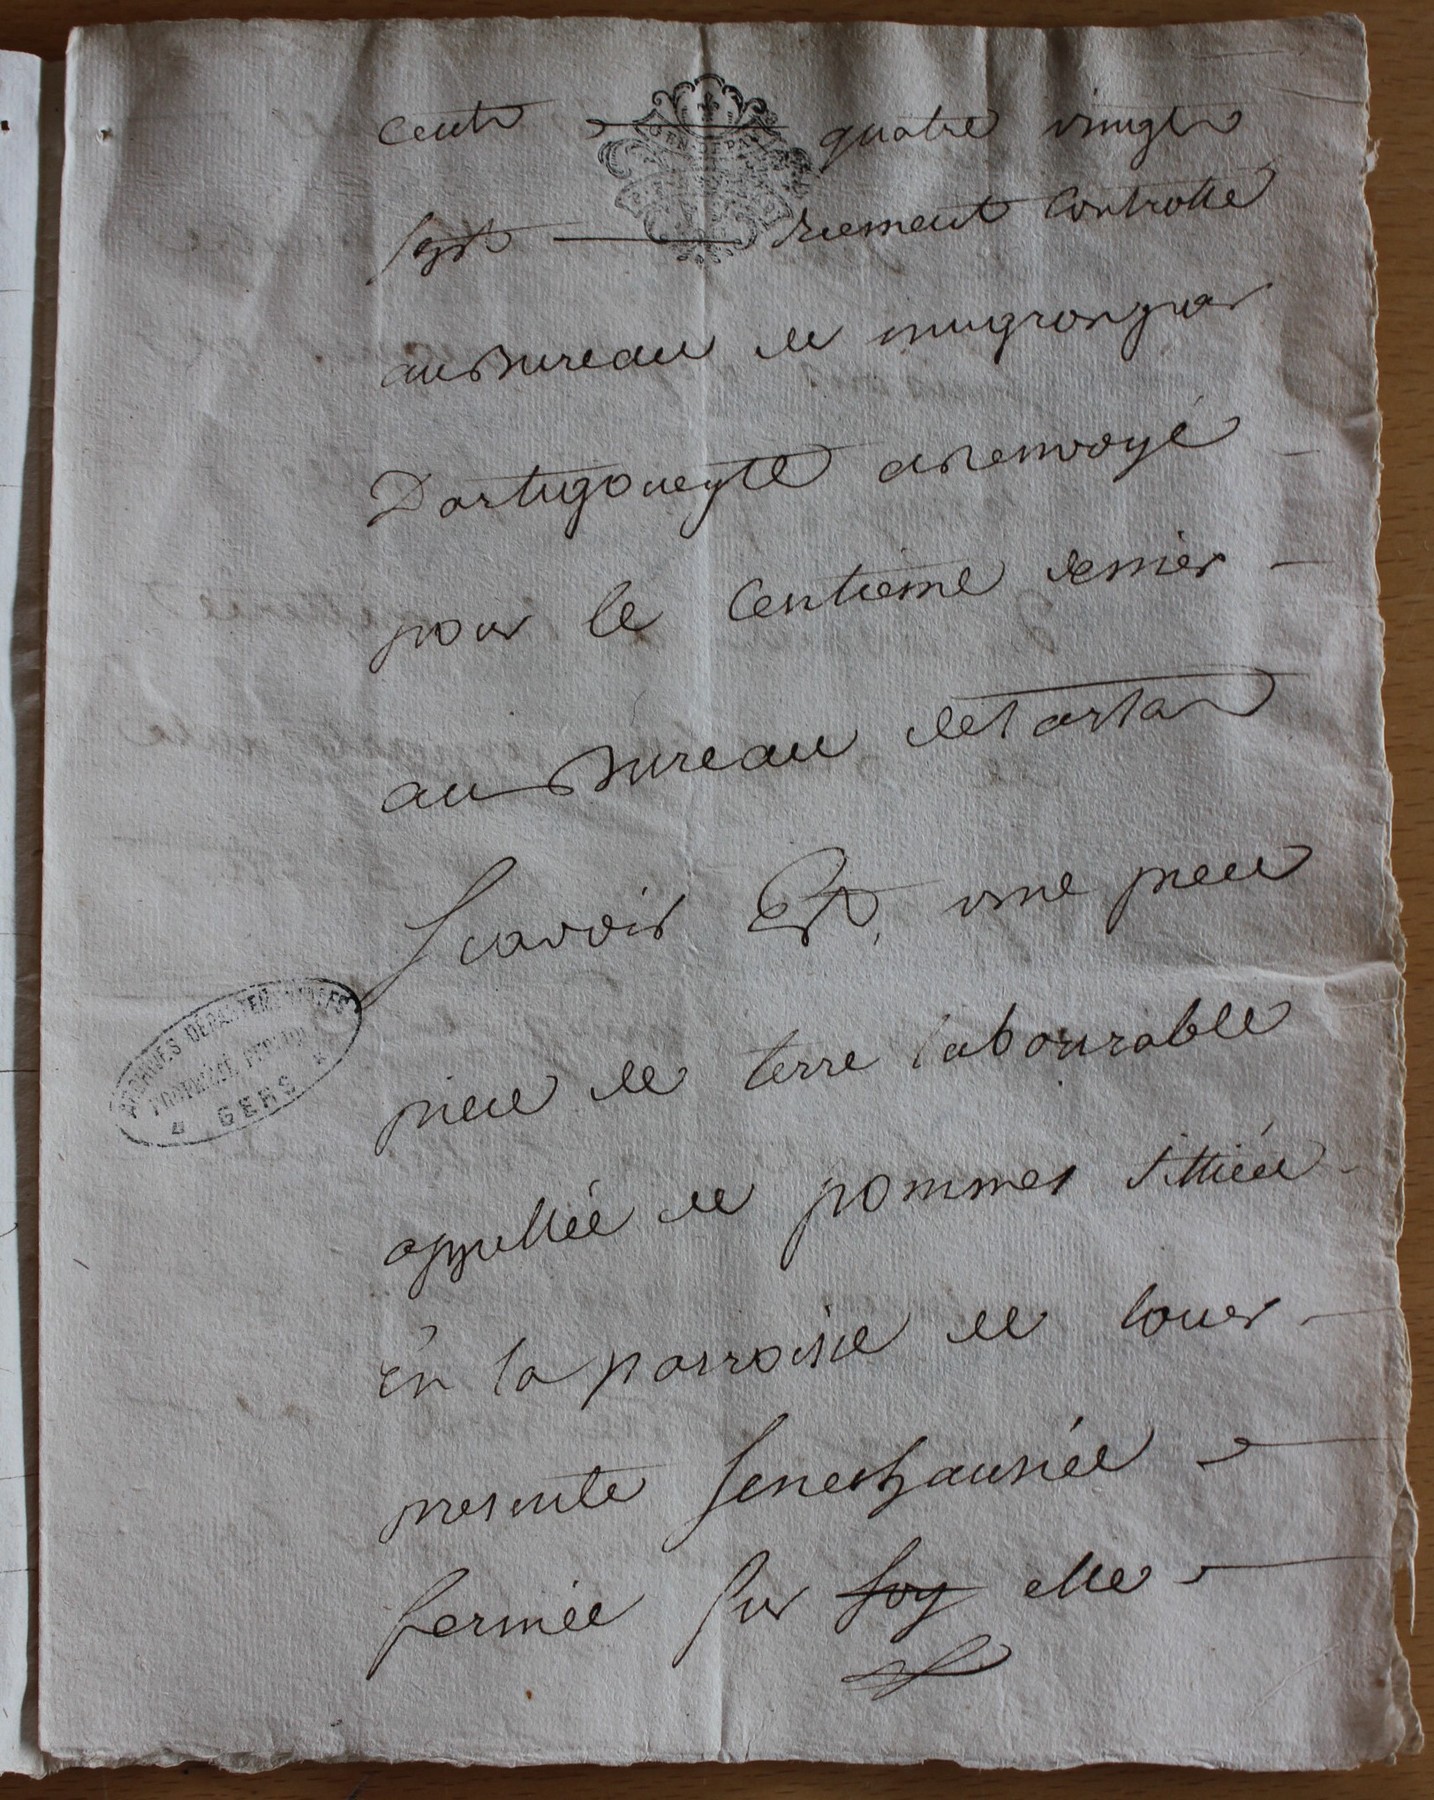 cent quatre vingt
sept duement controllé
au Bureau de mugron par
Dartigoueyte a renvoyé
pour le Centieme denier
au Bureau de Tartas
Scavoir Est, une piece
piece de terre labourable
appellée de pommes sittüée
En la parroisse de louer
presente senechaussée
fermée sur soy elle
ARCHIVES DÉPARTEMENTALES
GERS